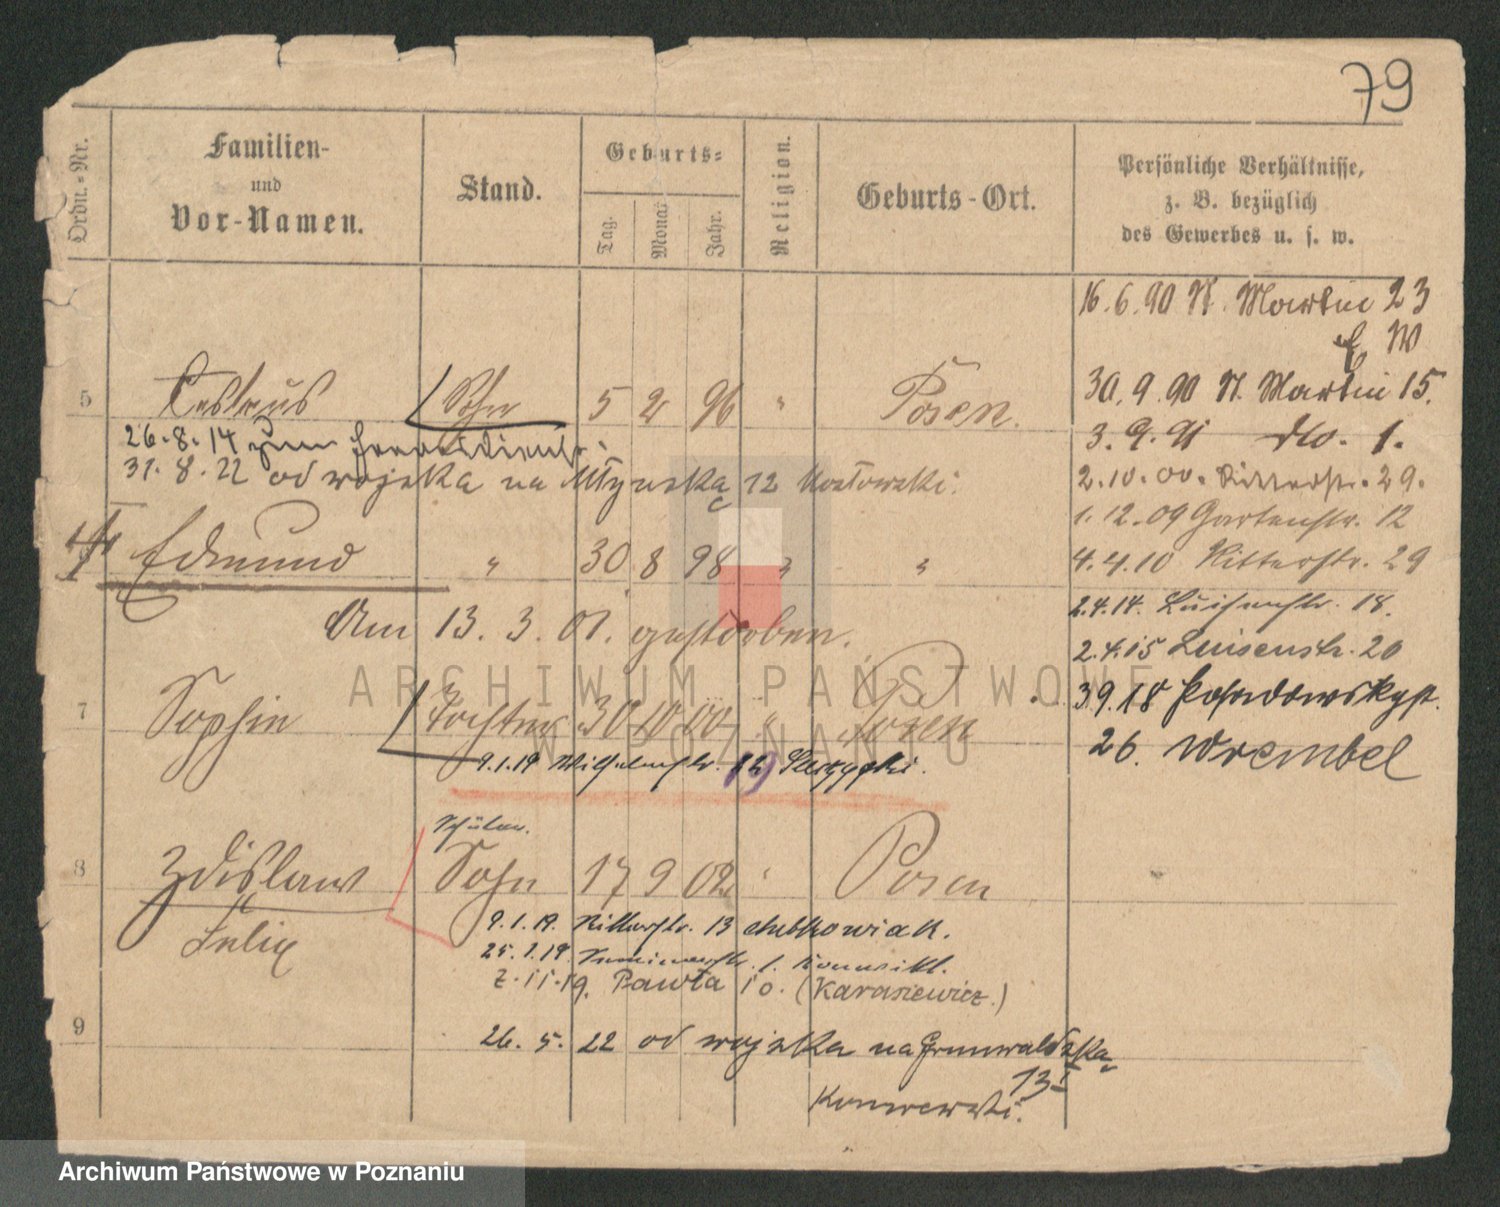 79
Ordn.-Nr.
Familien-
und
Vor-Namen.
Stand.
Geburts-
Tag.
Monat
Jahr.
Religion.
Geburts-Ort.
Persönliche Verhältnisse,
z. B. bezüglich
des Gewerbes u. s. w.
16.6.90 St. Martin 23
W
30.9.90 St. Martin 15.
5 Sohn 5 2 96 " Posen.
3.9.91 do. 1.
26.8.14 zum Heeresdienst.
31.8.22 od wojska na Młyńską 12 Kozłowski.
2.10.00. Ritterstr. 29.
1.12.09 Gartenstr. 12
Edmund " 30 8 98 " "
4.4.10 Ritterstr. 29
2.4.14. Luisenstr. 18.
Am 13.3.01. gestorben.
2.4.15 Luisenstr. 20
7 Sophie Tochter 30 10 00 " Posen
3.9.18 Posadowskystr.
26. Wrembel
9.1.19 Wilhelmstr. 19
Schüler.
8 Zdislaw Sohn 17 9 02 " Posen
Felix
9.1.19. Ritterstr. 13 Chełkowiak.
25.1.19. 1.
2.11.19. Pawła 10. (Karasiewicz.)
9
26.5.22 od wojska na Grunwaldzką
13 I
ARCHIWUM PAŃSTWOWE
W POZNANIU
Archiwum Państwowe w Poznaniu